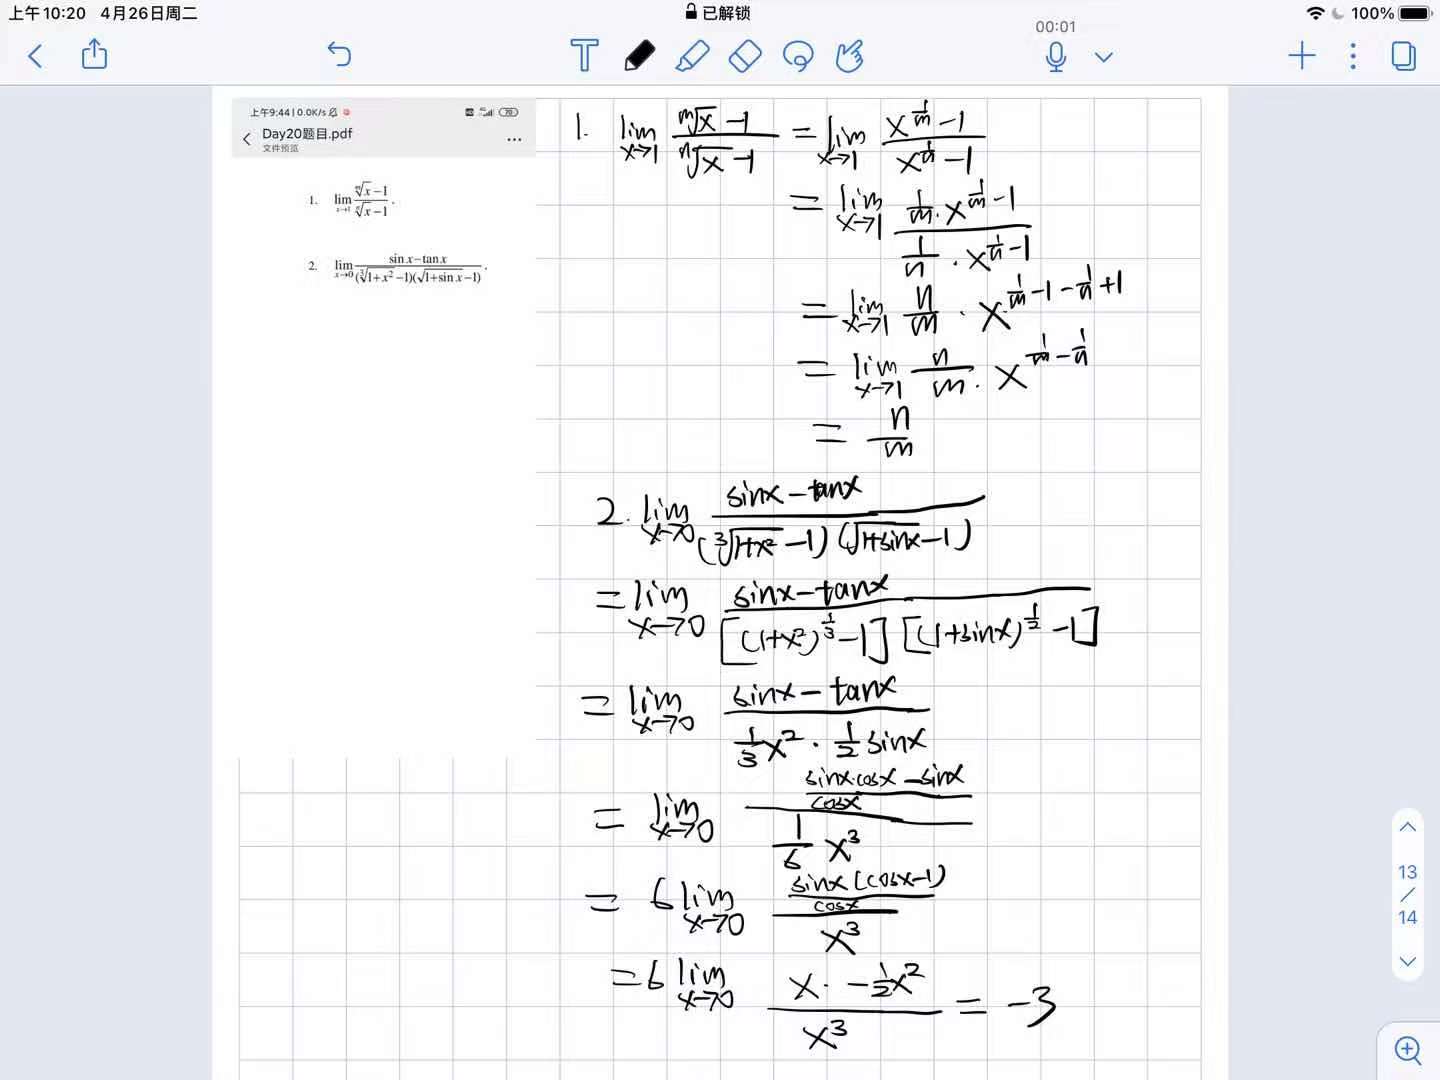 上午10:20 4月26日周二
已解锁
100%
00:01
上午9:44 | 0.0K/s
Day20题目.pdf
文件预览
1. lim x→1 (ᵐ√x −1)/(ⁿ√x −1).
2. lim x→0 (sin x − tan x)/((³√(1+x²) −1)(√(1+sin x) −1)).
1. lim x→1 (ᵐ√x −1)/(ⁿ√x −1) = lim x→1 (x^(1/m) −1)/(x^(1/n) −1)
= lim x→1 (1/m · x^(1/m −1))/(1/n · x^(1/n −1))
= lim x→1 n/m · x^(1/m −1 − 1/n +1)
= lim x→1 n/m · x^(1/m − 1/n)
= n/m
2. lim x→0 (sinx − tanx)/((³√(1+x²) −1)(√(1+sinx) −1))
= lim x→0 (sinx − tanx)/([(1+x²)^(1/3) −1][(1+sinx)^(1/2) −1])
= lim x→0 (sinx − tanx)/(1/3 x² · 1/2 sinx)
= lim x→0 ((sinx·cosx − sinx)/cosx)/(1/6 x³)
= 6 lim x→0 ((sinx(cosx−1))/cosx)/x³
= 6 lim x→0 (x · −1/2 x²)/x³ = −3
13
/
14